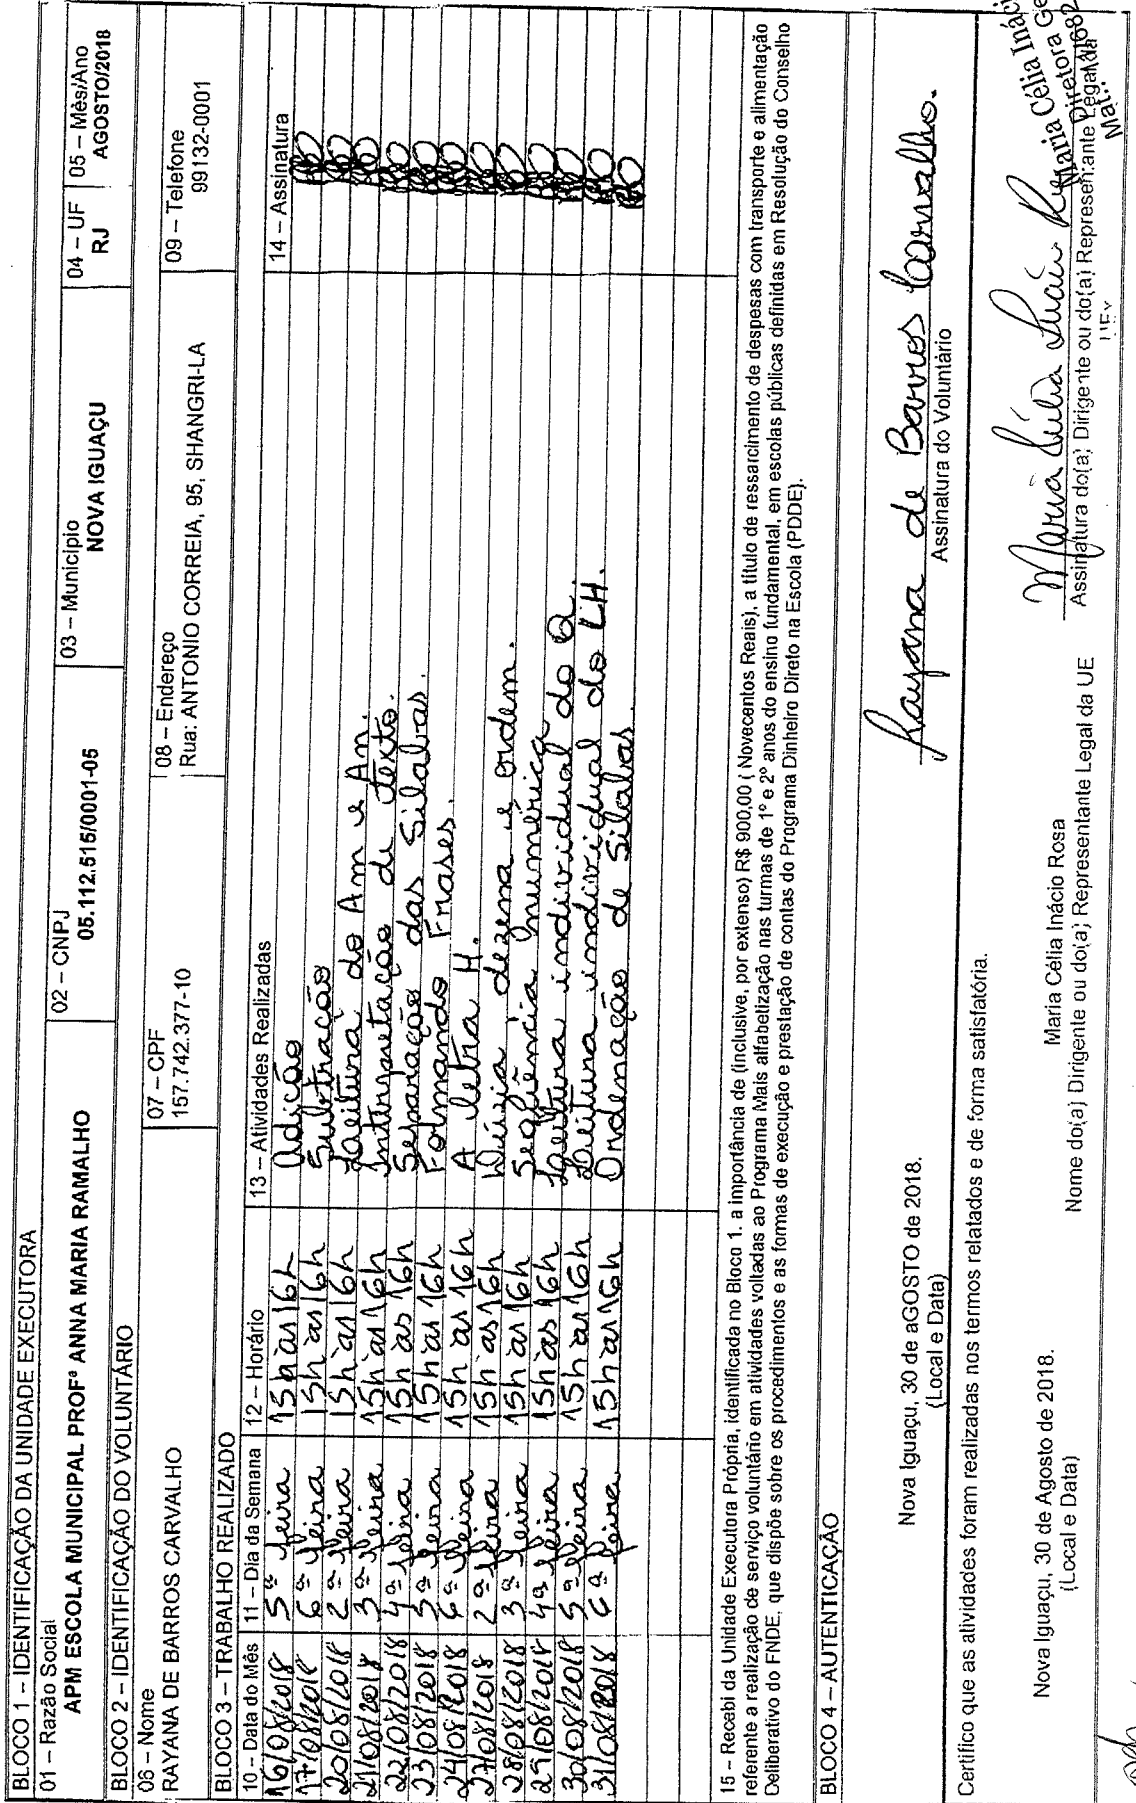 BLOCO 1 – IDENTIFICAÇÃO DA UNIDADE EXECUTORA
01 – Razão Social
APM ESCOLA MUNICIPAL PROFª ANNA MARIA RAMALHO
02 – CNPJ
05.112.515/0001-05
03 – Município
NOVA IGUAÇU
04 – UF
RJ
05 – Mês/Ano
AGOSTO/2018
BLOCO 2 – IDENTIFICAÇÃO DO VOLUNTÁRIO
06 – Nome
RAYANA DE BARROS CARVALHO
07 – CPF
157.742.377-10
08 – Endereço
Rua: ANTONIO CORREIA, 95, SHANGRI-LA
09 – Telefone
99132-0001
BLOCO 3 – TRABALHO REALIZADO
10 – Data do Mês 11 – Dia da Semana 12 – Horário 13 – Atividades Realizadas 14 – Assinatura
16/08/2018 5ª feira 15h às 16h Adição
17/08/2018 6ª feira 15h às 16h Subtração
20/08/2018 2ª feira 15h às 16h Leitura do Am e An.
21/08/2018 3ª feira 15h às 16h Interpretação de texto.
22/08/2018 4ª feira 15h às 16h Separação das Silabas.
23/08/2018 5ª feira 15h às 16h Formando Frases.
24/08/2018 6ª feira 15h às 16h A letra H.
27/08/2018 2ª feira 15h às 16h dezena e ordem.
28/08/2018 3ª feira 15h às 16h Seqüência numérica
29/08/2018 4ª feira 15h às 16h Leitura individual do Q.
30/08/2018 5ª feira 15h às 16h Leitura individual do LH.
31/08/2018 6ª feira 15h às 16h Ordenação de Silabas
15 – Recebi da Unidade Executora Própria, identificada no Bloco 1. a importância de (inclusive, por extenso) R$ 900,00 ( Novecentos Reais), a título de ressarcimento de despesas com transporte e alimentação
referente a realização de serviço voluntário em atividades voltadas ao Programa Mais alfabetização nas turmas de 1º e 2º anos do ensino fundamental, em escolas públicas definidas em Resolução do Conselho
Deliberativo do FNDE, que dispõe sobre os procedimentos e as formas de execução e prestação de contas do Programa Dinheiro Direto na Escola (PDDE).
BLOCO 4 – AUTENTICAÇÃO
Nova Iguaçu, 30 de aGOSTO de 2018.
(Local e Data)
Rayana de Barros Carvalho.
Assinatura do Voluntário
Certifico que as atividades foram realizadas nos termos relatados e de forma satisfatória.
Nova Iguaçu, 30 de Agosto de 2018.
(Local e Data)
Maria Célia Inácio Rosa
Nome do(a) Dirigente ou do(a) Representante Legal da UE
Maria Célia Inácio
Assinatura do(a) Dirigente ou do(a) Representante Legal da
UEx
Maria Célia Ináci
Diretora Ge
Mat.: